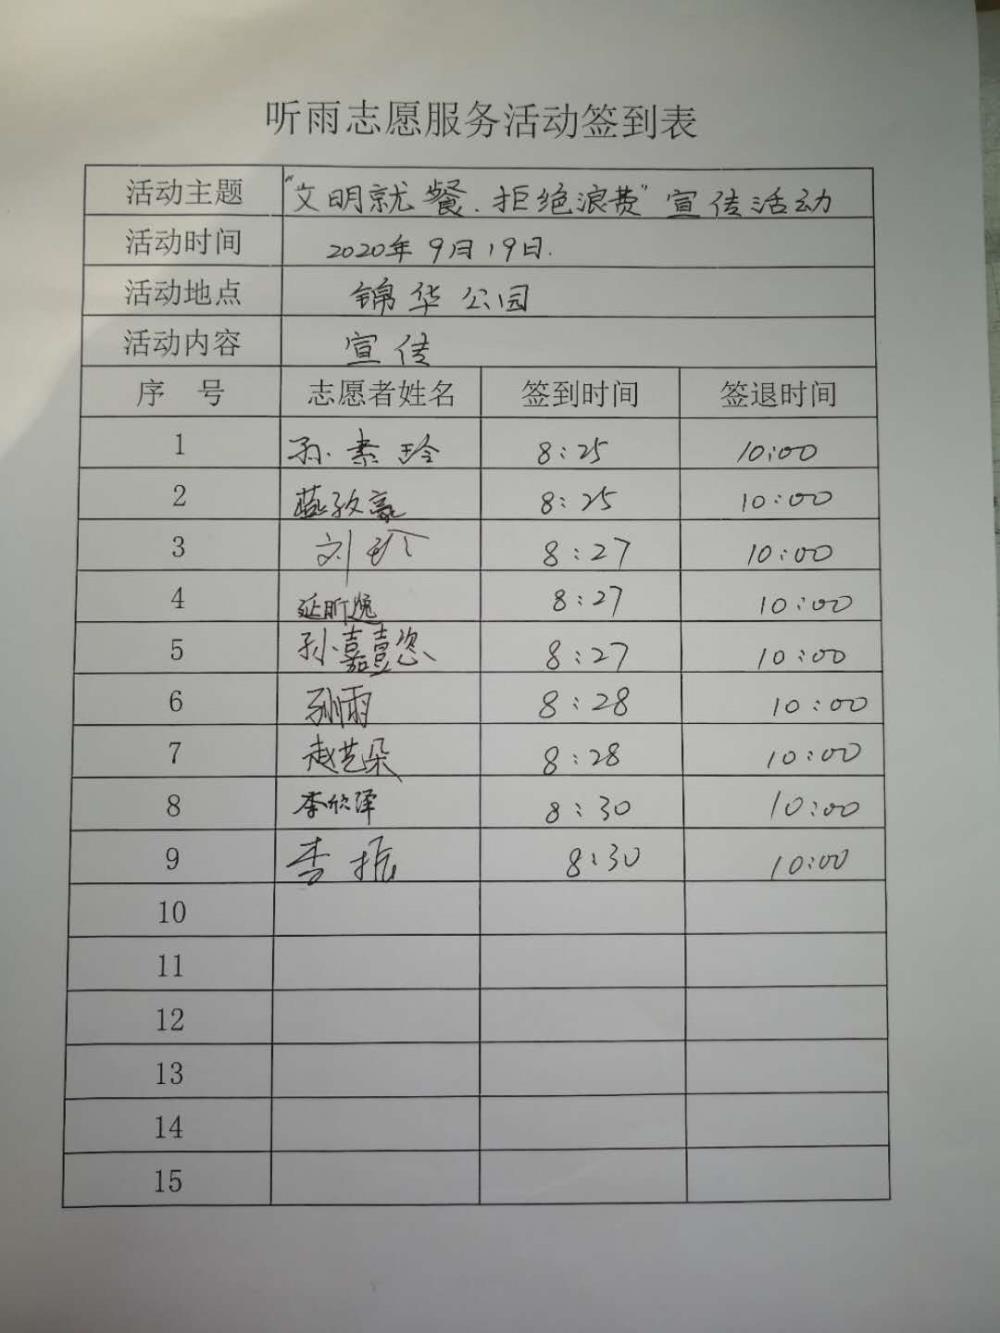 听雨志愿服务活动签到表
活动主题 “文明就餐.拒绝浪费”宣传活动
活动时间 2020年9月19日.
活动地点 锦华公园
活动内容 宣传
序 号 志愿者姓名 签到时间 签退时间
1 孙素玲 8:25 10:00
2 8:25 10:00
3 刘玲 8:27 10:00
4 延昕逸 8:27 10:00
5 孙嘉懿 8:27 10:00
6 孙雨 8:28 10:00
7 赵艺朵 8:28 10:00
8 李欣泽 8:30 10:00
9 李振 8:30 10:00
10
11
12
13
14
15